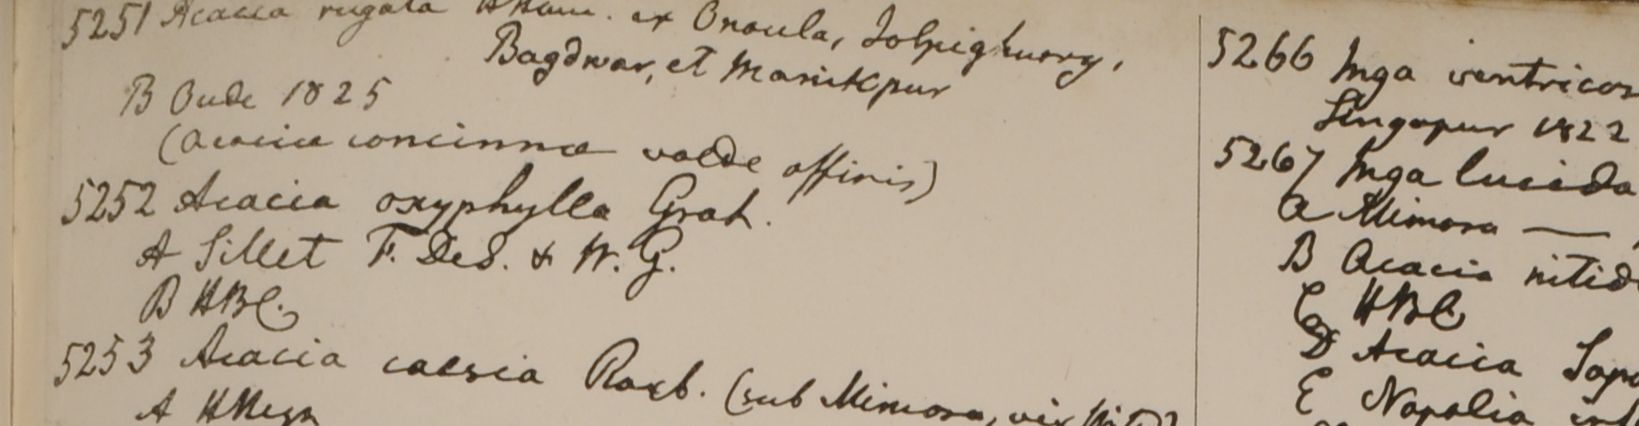 5251 Acacia rugata HHam. ex Onoula, Jolpighurry,
Bagdwar, et Manikpur
B Oude 1825
(Acaciae concinnae valde affinis)
5252 Acacia oxyphylla Grah.
A Sillet F. DeS. & W. G.
B HBC.
5253 Acacia caesia Roxb. (sub Mimosa, vix
A HHeyn
5266 Inga ventricos
Singapur 1822
5267 Inga lucida
a Mimosa —
B Acacia nitid
C HBC
D Acacia Sapo
E Nopalia